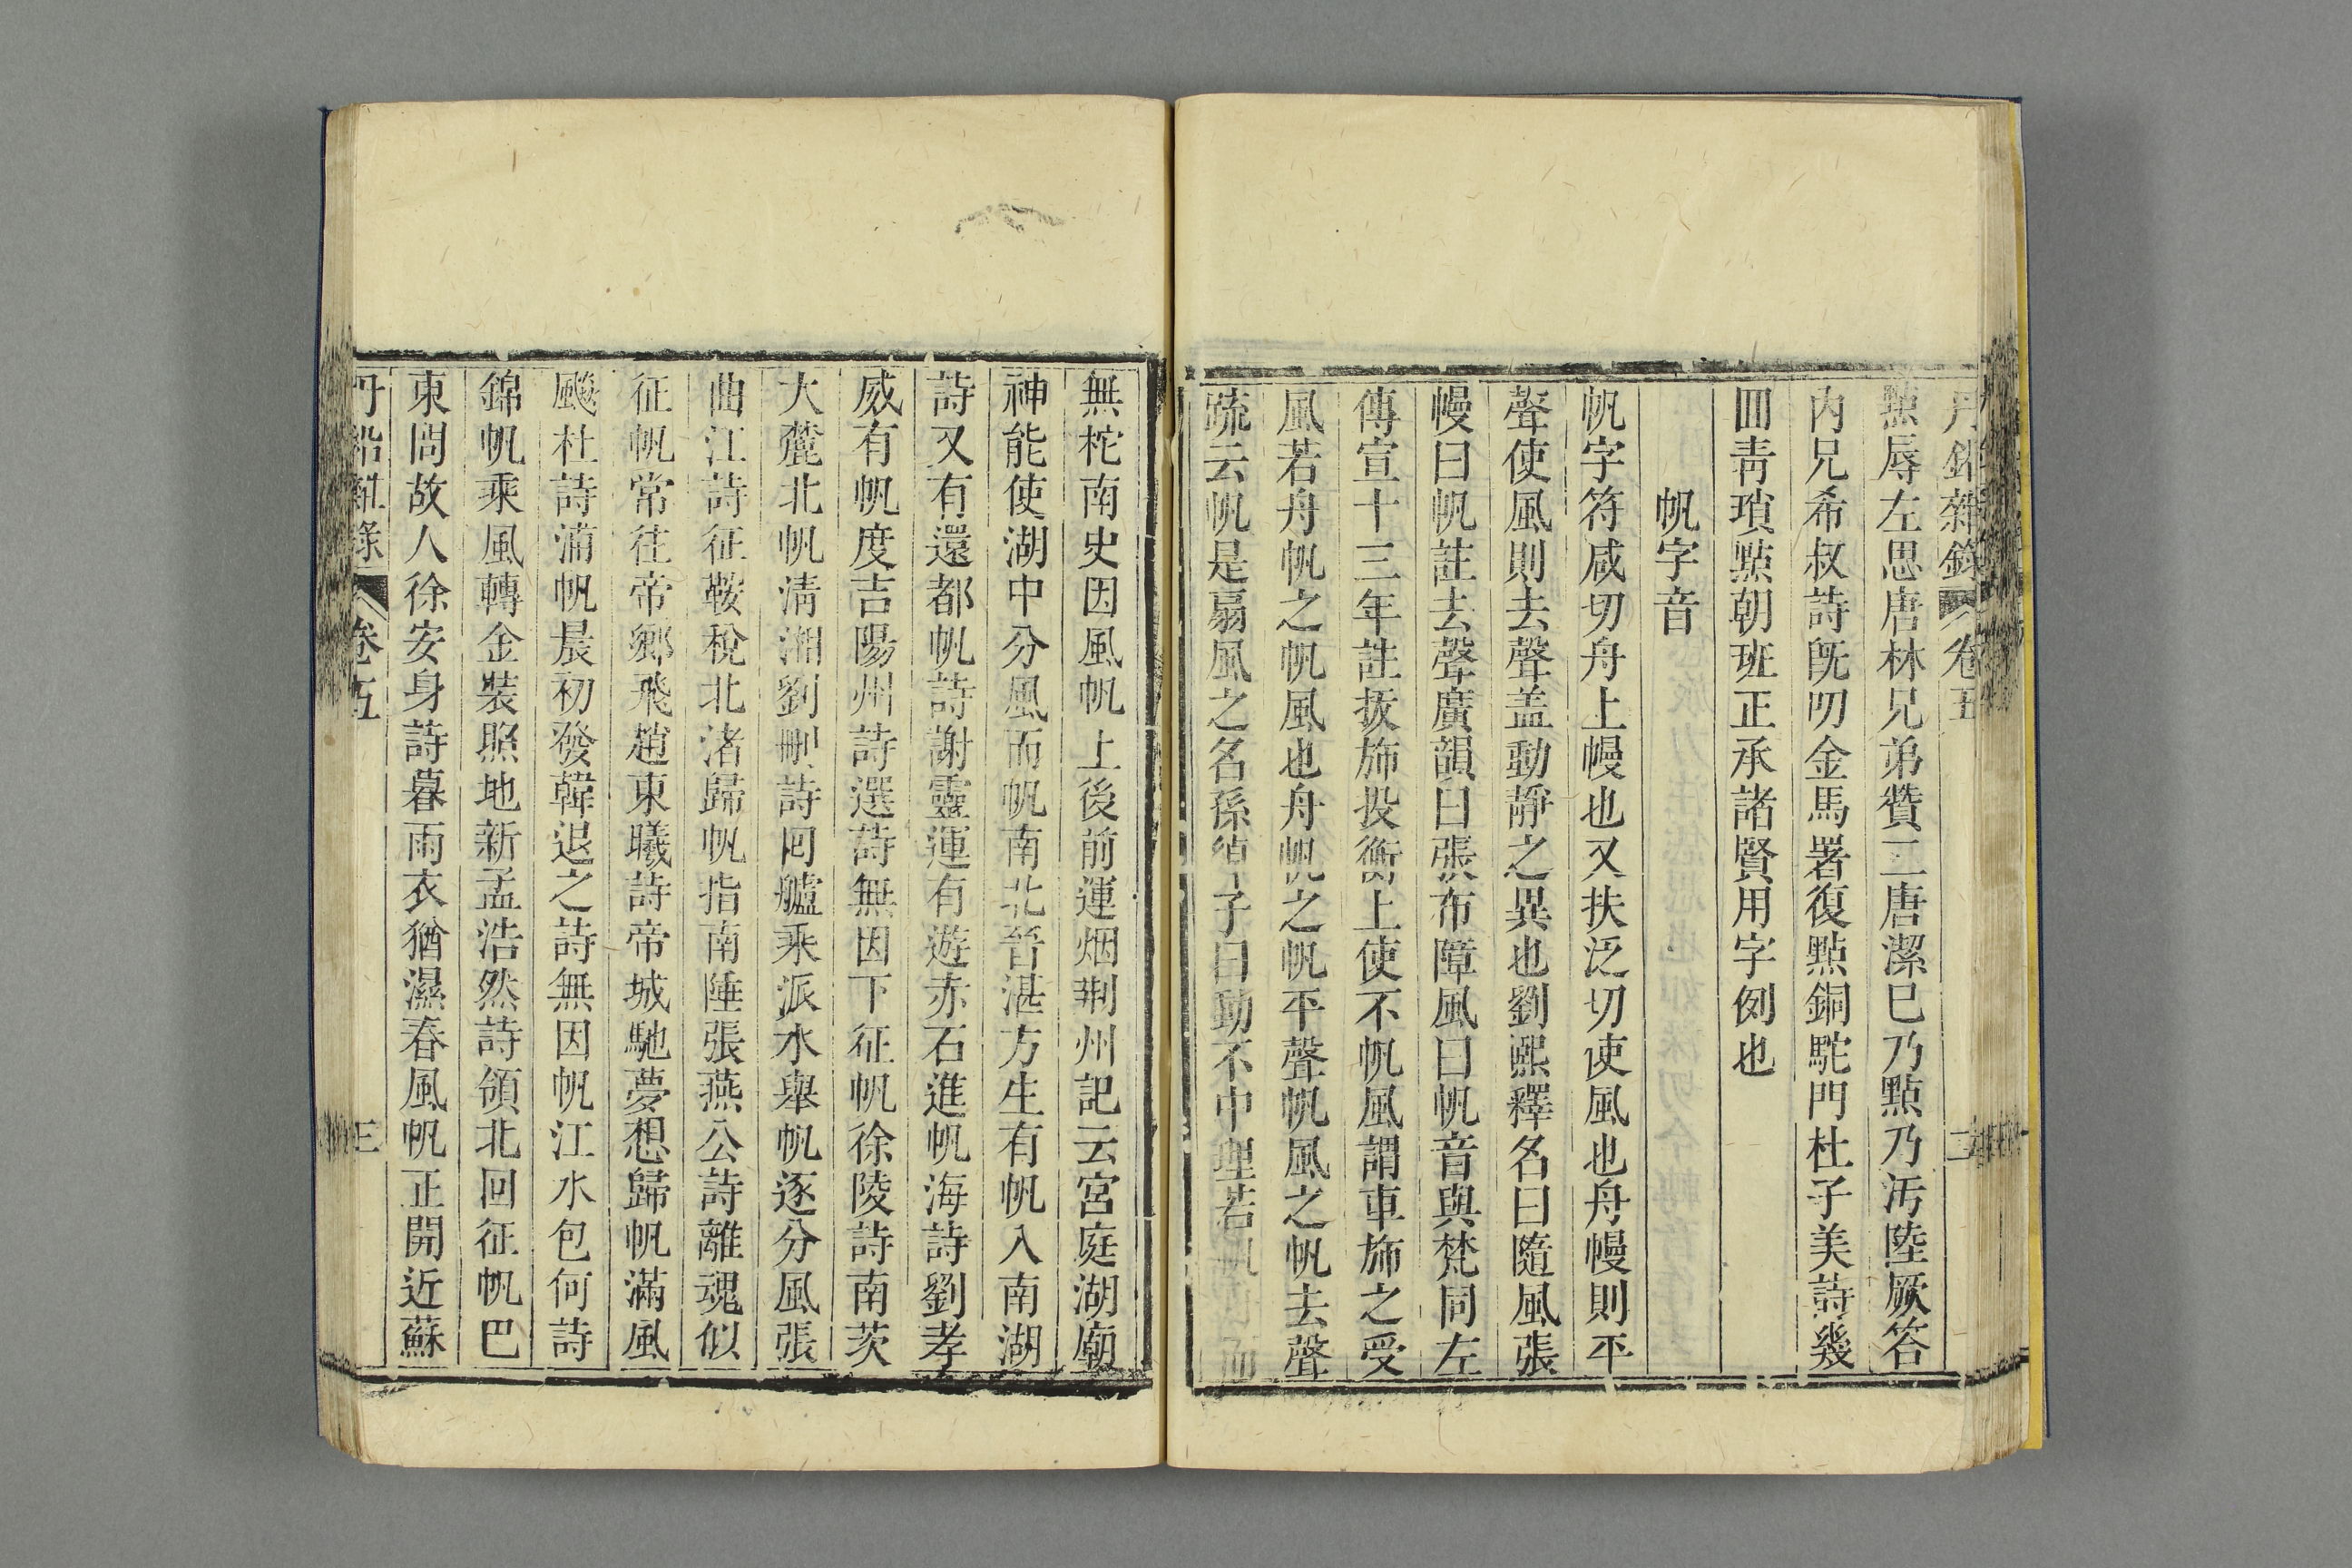 丹鉛雜錄 卷五 二
點辱左思唐林兄弟贊二唐潔已乃點乃汚陸厥答
内兄希叔詩旣叨金馬署復點銅駝門杜子美詩幾
囬靑瑣點朝班正承諸賢用字例也
帆字音
帆字符咸切舟上幔也又扶泛切使風也舟幔則平
聲使風則去聲盖動靜之異也劉熙釋名曰隨風張
幔曰帆註去聲廣韻曰張布障風曰帆音與梵同左
傳宣十三年註拔旆投衡上使不帆風謂車旆之受
風若舟帆之帆風也舟帆之帆平聲帆風之帆去聲
疏云帆是扇風之名孫綽子曰動不中理若帆而
無柁南史因風帆上後前運烟荆州記云宮庭湖廟
神能使湖中分風而帆南北晉湛方生有帆入南湖
詩又有還都帆詩謝靈運有遊赤石進帆海詩劉孝
威有帆度吉陽州詩選詩無因下征帆徐陵詩南茨
大麓北帆淸湘劉刪詩回艫乘派水舉帆逐分風張
曲江詩征鞍稅北渚歸帆指南陲張燕公詩離魂似
征帆常往帝鄉飛趙東曦詩帝城馳夢想歸帆滿風
颷杜詩浦帆晨初發韓退之詩無因帆江水包何詩
錦帆乘風轉金裝照地新孟浩然詩領北回征帆巴
東問故人徐安身詩暮雨衣猶濕春風帆正開近蘇
丹鉛雜錄 卷五 三